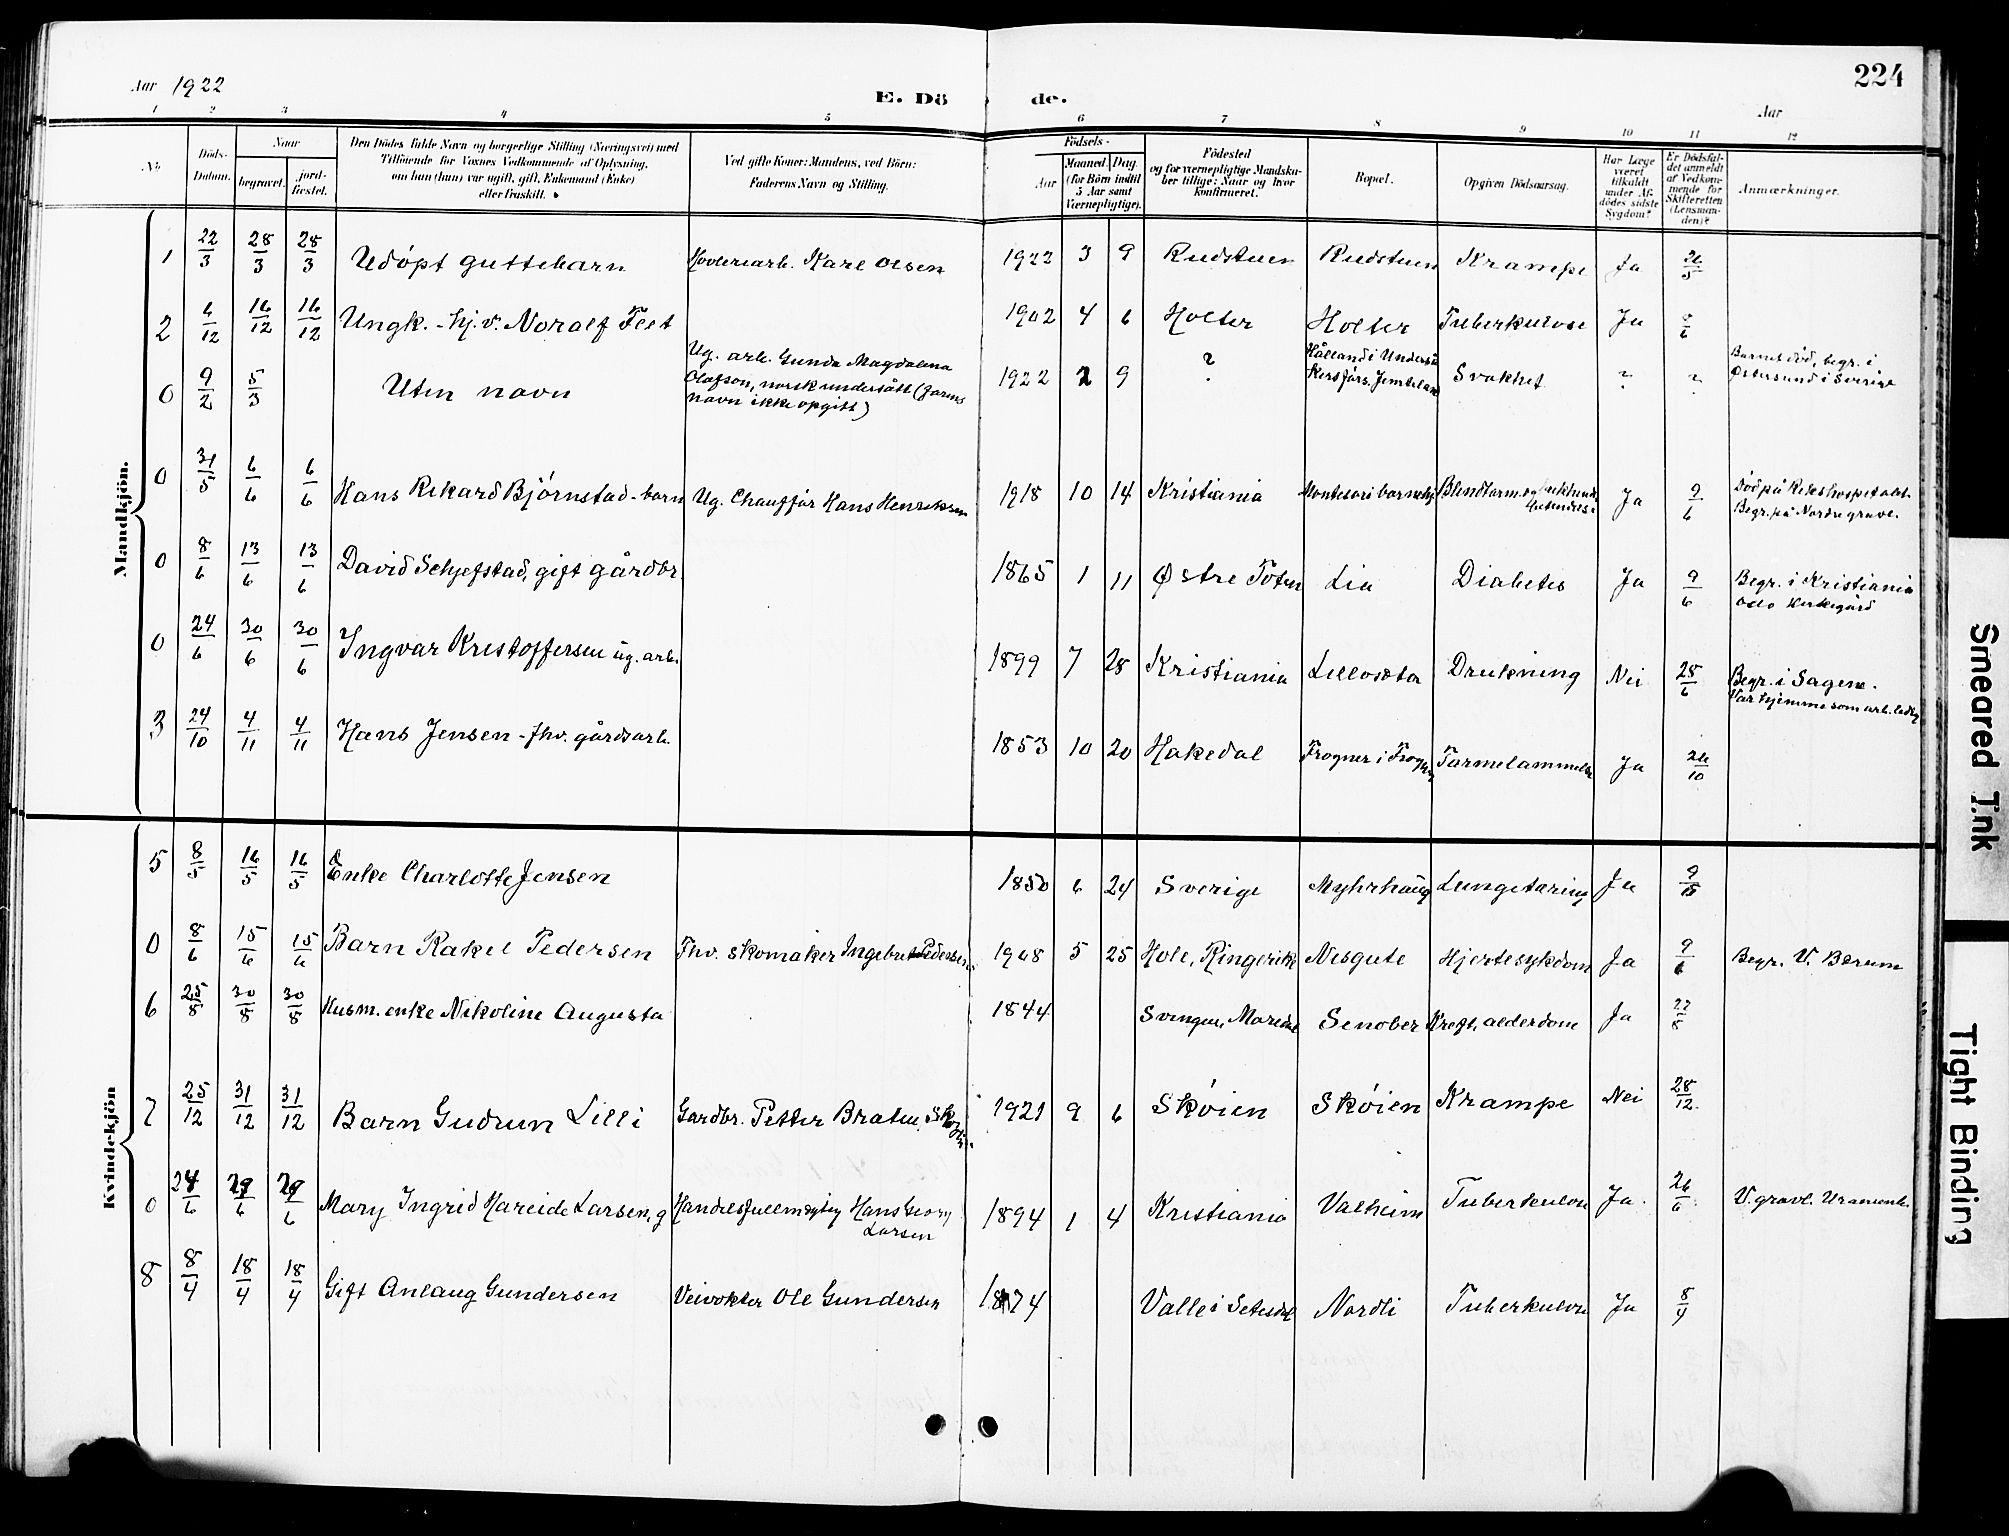 Aar 1922
E. Dö de.
Aar
224
1 2 3 4 5 6 7 8 9 10 11 12
No
Döds-Datum.
Naar
begravet.
jord-fæstet.
Den Dödes fulde Navn og borgerlige Stilling (Næringsvei) med
Tilföiende for Voxnes Vedkommende af Oplysning,
om han (hun) var ugift, gift, Enkemand (Enke)
eller fraskilt.
Ved gifte Koner: Mandens, ved Börn:
Faderens Navn og Stilling.
Födsels-
Aar
Maaned. Dag.
(for Börn indtil
5 Aar samt
Værnepligtige).
Födested
og for værnepligtige Mandska-
ber tillige: Naar og hvor
konfirmeret.
Bopæl.
Opgiven Dödsaarsag.
Har Læge
været
tilkaldt
under Af-
dödes sidste
Sygdom?
Er Dödsfal-
det anmeldt
af Vedkom-
mende for
Skifteretten
(Lensman-
den)?
Anmærkninger.
Mandkjön.
1 22/3 28/3 28/3 Udöpt guttebarn Hövleriarb. Karl Olsen 1922 3 9 Rudstuen Rudstuen Krampe Ja 26/5
2 6/12 16/12 16/12 Ungk. - hj. v. Noralf Flet 1902 4 6 Holter Holter Tuberkulose Ja
0 9/2 5/3 Uten navn Ug. arb. Gunda Magdalena
Olafson, norsk undersått (farens
navn ikke opgitt) 1922 2 9 ? Hålland i Underså
Svakhet ? ? Barnet död, begr. i
Østersund i Sverige
0 31/5 6/6 6/6 Hans Rikard Bjørnstad - barn Ug. Chauffør Hans Henriksen 1918 10 14 Kristiania Montesori barnehj Blindtarm Ja 9/6 Död på Rikshospitalet.
Begr. på Nordre gravl.
0 8/6 13/6 13/6 David Schjefstad, gift gårdbr. 1865 1 11 Østre Toten Lia Diabetes Ja 9/6 Begr. i Kristiania
Oslo Kirkegård
0 24/6 30/6 30/6 Ingvar Kristoffersen ug. arb. 1899 7 28 Kristiania Lilloseter Drukning Nei 28/6 Begr. i Sagene.
Var hjemme som arb. ledig
3 24/10 4/11 4/11 Hans Jensen - fhv. gårdsarb. 1853 10 20 Hakedal Frogner i Frogner Tarmelammelse Ja 26/10
Kvindekjön
5 8/5 16/5 16/5 Enke Charlotte Jensen 1850 6 24 Sverige Myhrhaug Ja
0 8/6 15/6 15/6 Barn Rakel Pedersen Fhv. skomaker Ingebret Pedersen 1908 5 25 Hole, Ringerike Nesgute Hjertesykdom Ja 9/6 Begr. V. Bærum
6 25/8 30/8 30/8 Husm. enke Nikoline Augusta 1844 Svingen, Maridal Senober Kreft, alderdom Ja
7 25/12 31/12 31/12 Barn Gudrun Lilli Gardbr. Petter Braten, 1921 9 6 Skøien Skøien Krampe Nei 28/12.
0 24/6 29/6 29/6 Mary Ingrid Hareide Larsen, g Handelsfullmegtig Hans Georg
Larsen 1894 1 4 Kristiania Valheim Tuberkulose Ja. 26/6 V. gravl. Uranienb.
8 8/4 18/4 18/4 Gift Anlaug Gundersen Veivokter Ole Gundersen 1874 Valle i Setesdal Nordli Tuberkulose Ja 8/4
Smeared Ink
Tight Binding